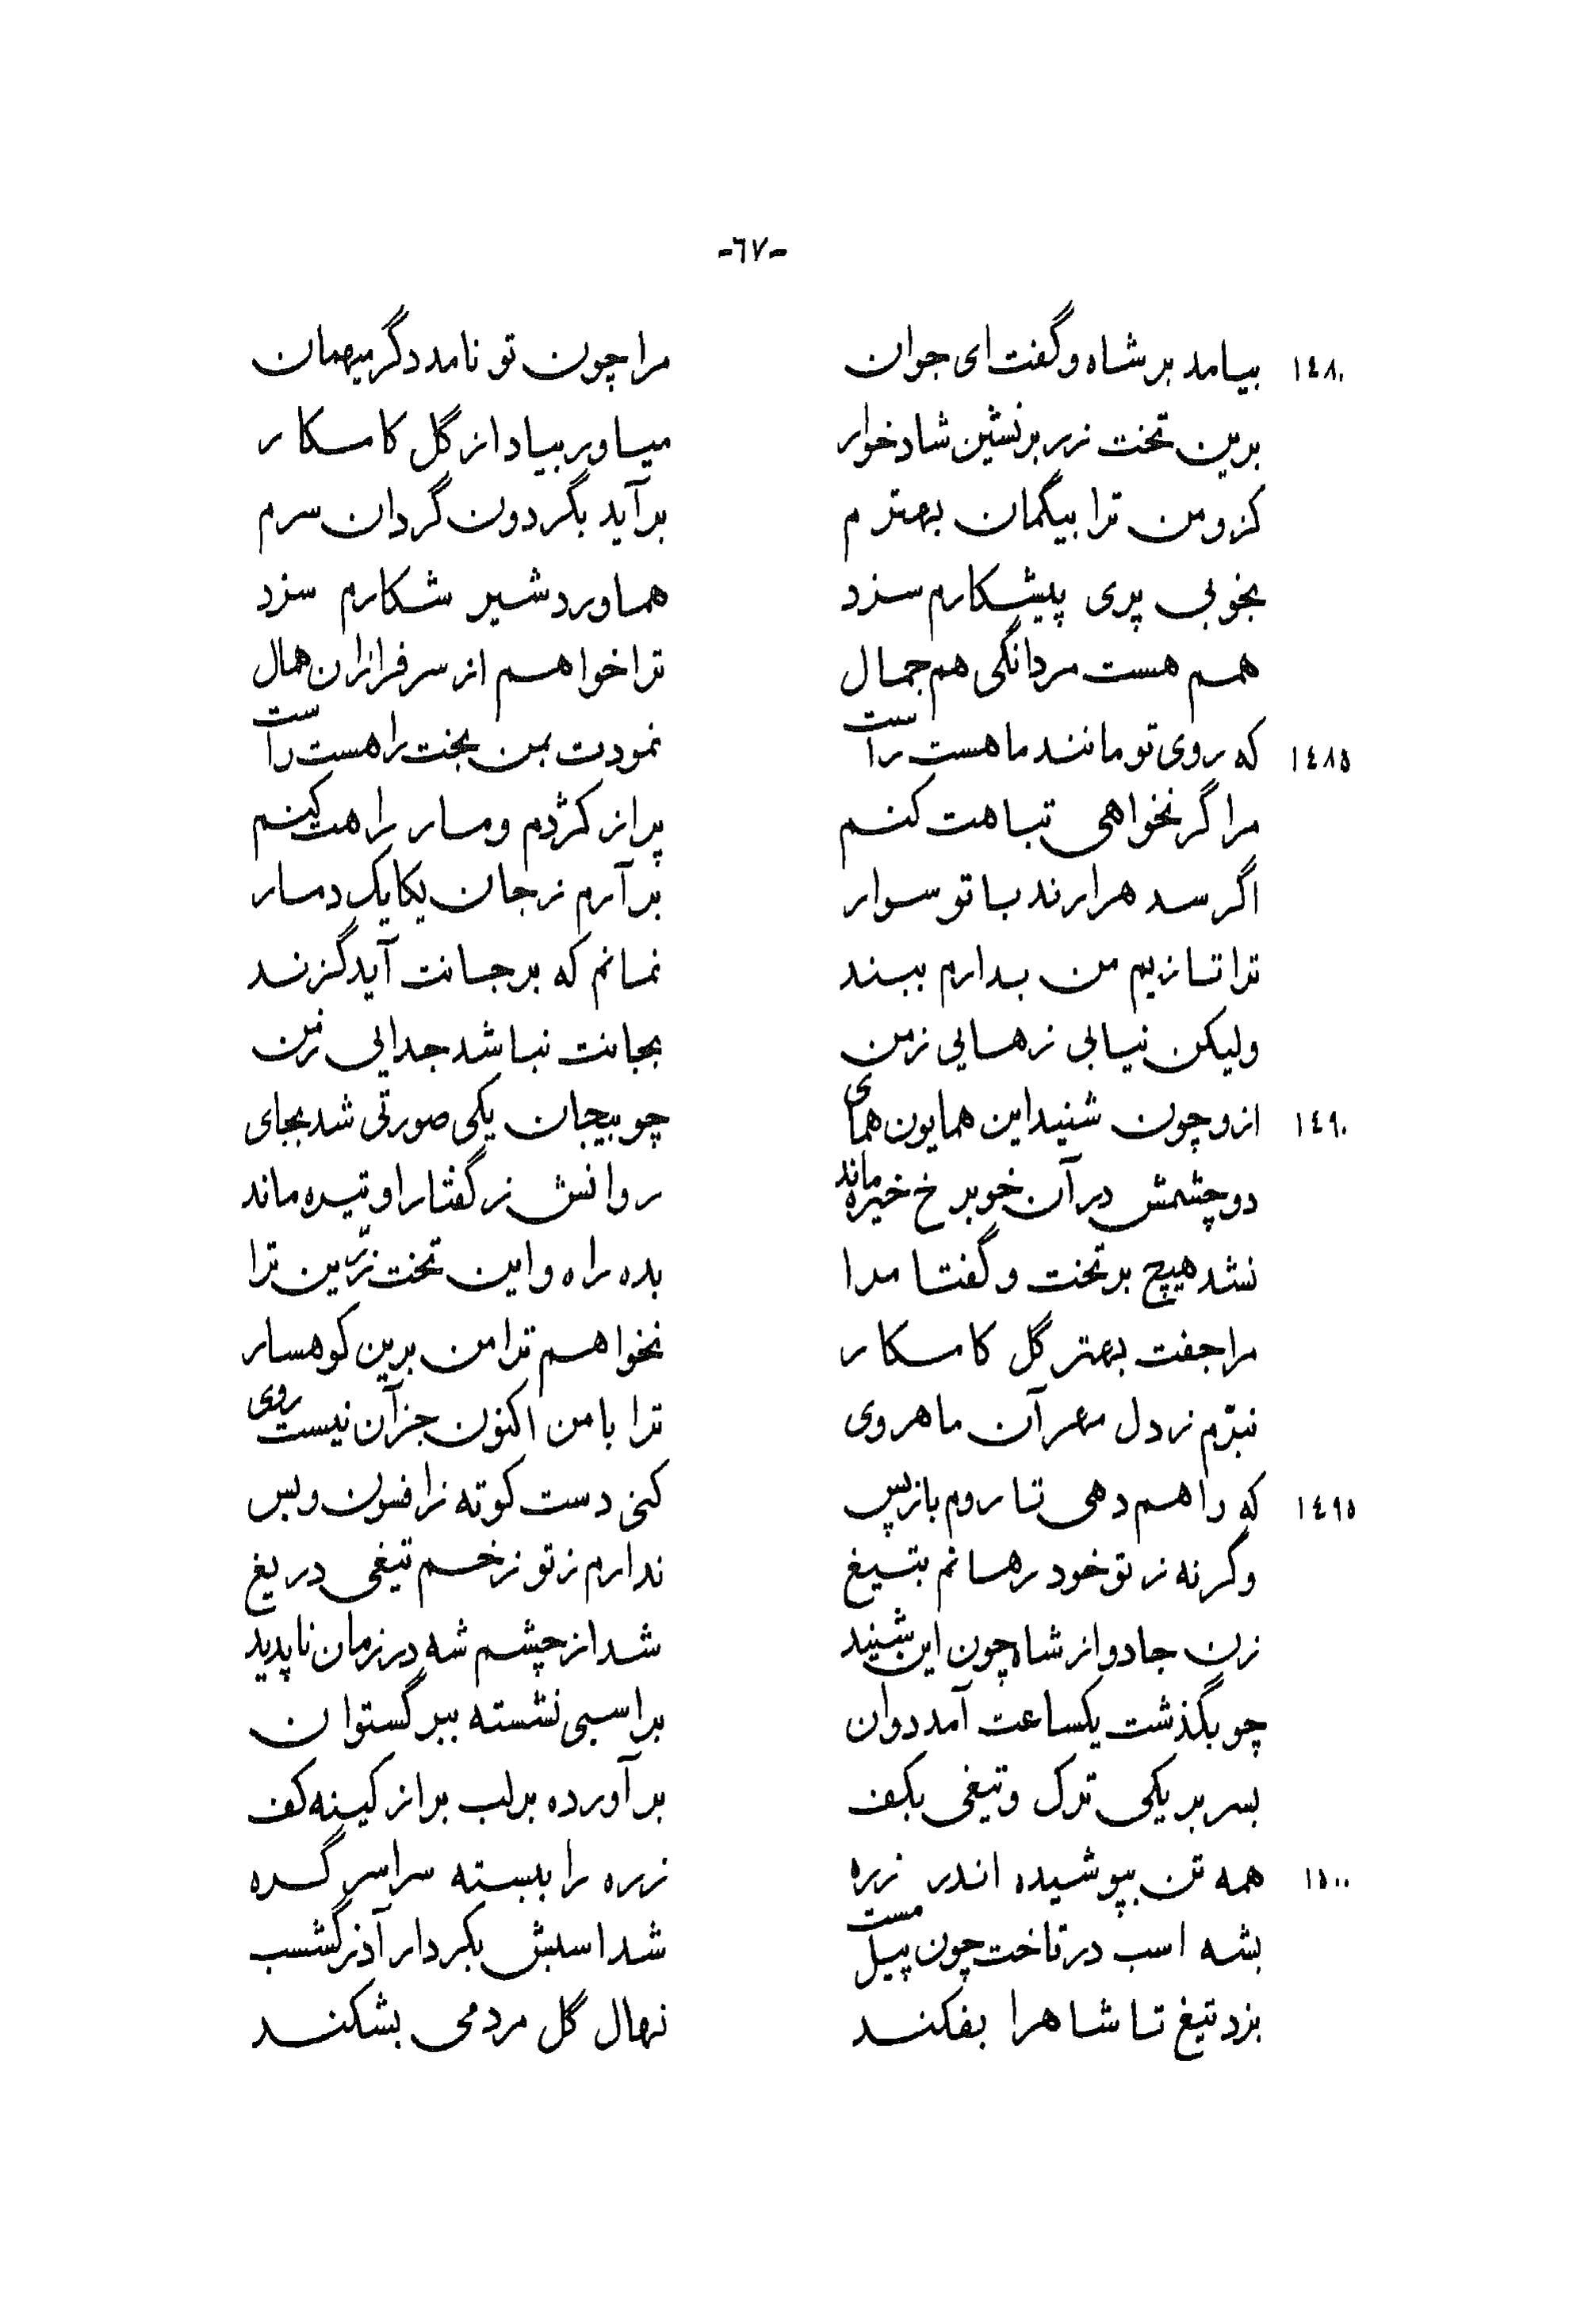 -٦٧-
١٤٨٠ بیامد بر شاه و گفت ای جوان مرا چون تو نامد دگر میهمان
برین تخت زر بر نشین شادخوار میاور بیاد از گل کامکار
کز و من ترا بیگمان بهترم برآید بگردون گردان سرم
بخوبی پری پیشکارم سزد هماورد شیر شکارم سزد
همم هست مردانگی هم جمال ترا خواهم از سرفرازان همال
١٤٨٥ که روی تو مانند ماهست راست نمودت بمن بخت راهست راست
مرا گر نخواهی تباهت کنم پر از کژدم و مار راهت کنم
اگر سد هزارند با تو سوار برآرم ز جان یکایک دمار
ترا تا زیم من بدارم ببند نمانم که بر جانت آید گزند
ولیکن نیابی زهایی ز من بجانت نباشد جدایی ز من
١٤٩٠ ازو چون شنید این همایون همای چو بیجان یکی صورتی شد بجای
دو چشمش در آن خوبرخ خیره ماند روانش ز گفتار او تیره ماند
نشد هیچ بر تخت و گفتا مرا بده راه و این تخت زرّین ترا
مرا جفت بهتر گل کامکار نخواهم ترا من برین کوهسار
نبرّم ز دل مهر آن ماهروی ترا با من اکنون جز آن نیست روی
١٤٩٥ که راهم دهی تا روم باز پس کنی دست کوته ز افسون و بس
وگرنه ز تو خود رهانم بتیغ ندارم ز تو زخم تیغی دریغ
زن جادو از شاه چون این شنید شد از چشم شه در زمان ناپدید
چو بگذشت یکساعت آمد دوان بر اسبی نشسته ببرگستوان
بسر بر یکی ترک و تیغی بکف برآورده بر لب بر از کینه کف
١٥٠٠ همه تن بپوشیده اندر زره زره را ببسته سراسر گره
بشه اسب در تاخت چون پیل مست شد اسبش بکردار آذرگشسب
بزد تیغ تا شاه را بفکند نهال گل مردمی بشکند